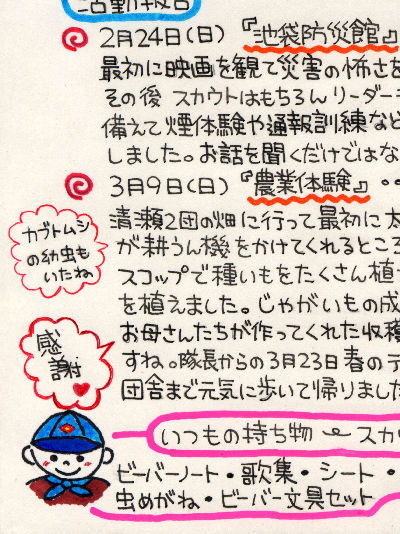 活動報告
2月24日(日)『池袋防災館』
最初に映画を観て災害の怖さを
その後 スカウトはもちろんリーダー
備えて煙体験や通報訓練など
しました。お話を聞くだけではな
3月9日(日)『農業体験』・・
清瀬2団の畑に行って最初に太
が耕うん機をかけてくれるところ
スコップで種いもをたくさん植
を植えました。じゃがいもの成
お母さんたちが作ってくれた収穫
すね。隊長からの3月23日春の
団舎まで元気に歩いて帰りました
カブトムシ
の幼虫も
いたね
感謝
いつもの持ち物 スカ
ビーバーノート・歌集・シート・
虫めがね・ビーバー文具セット